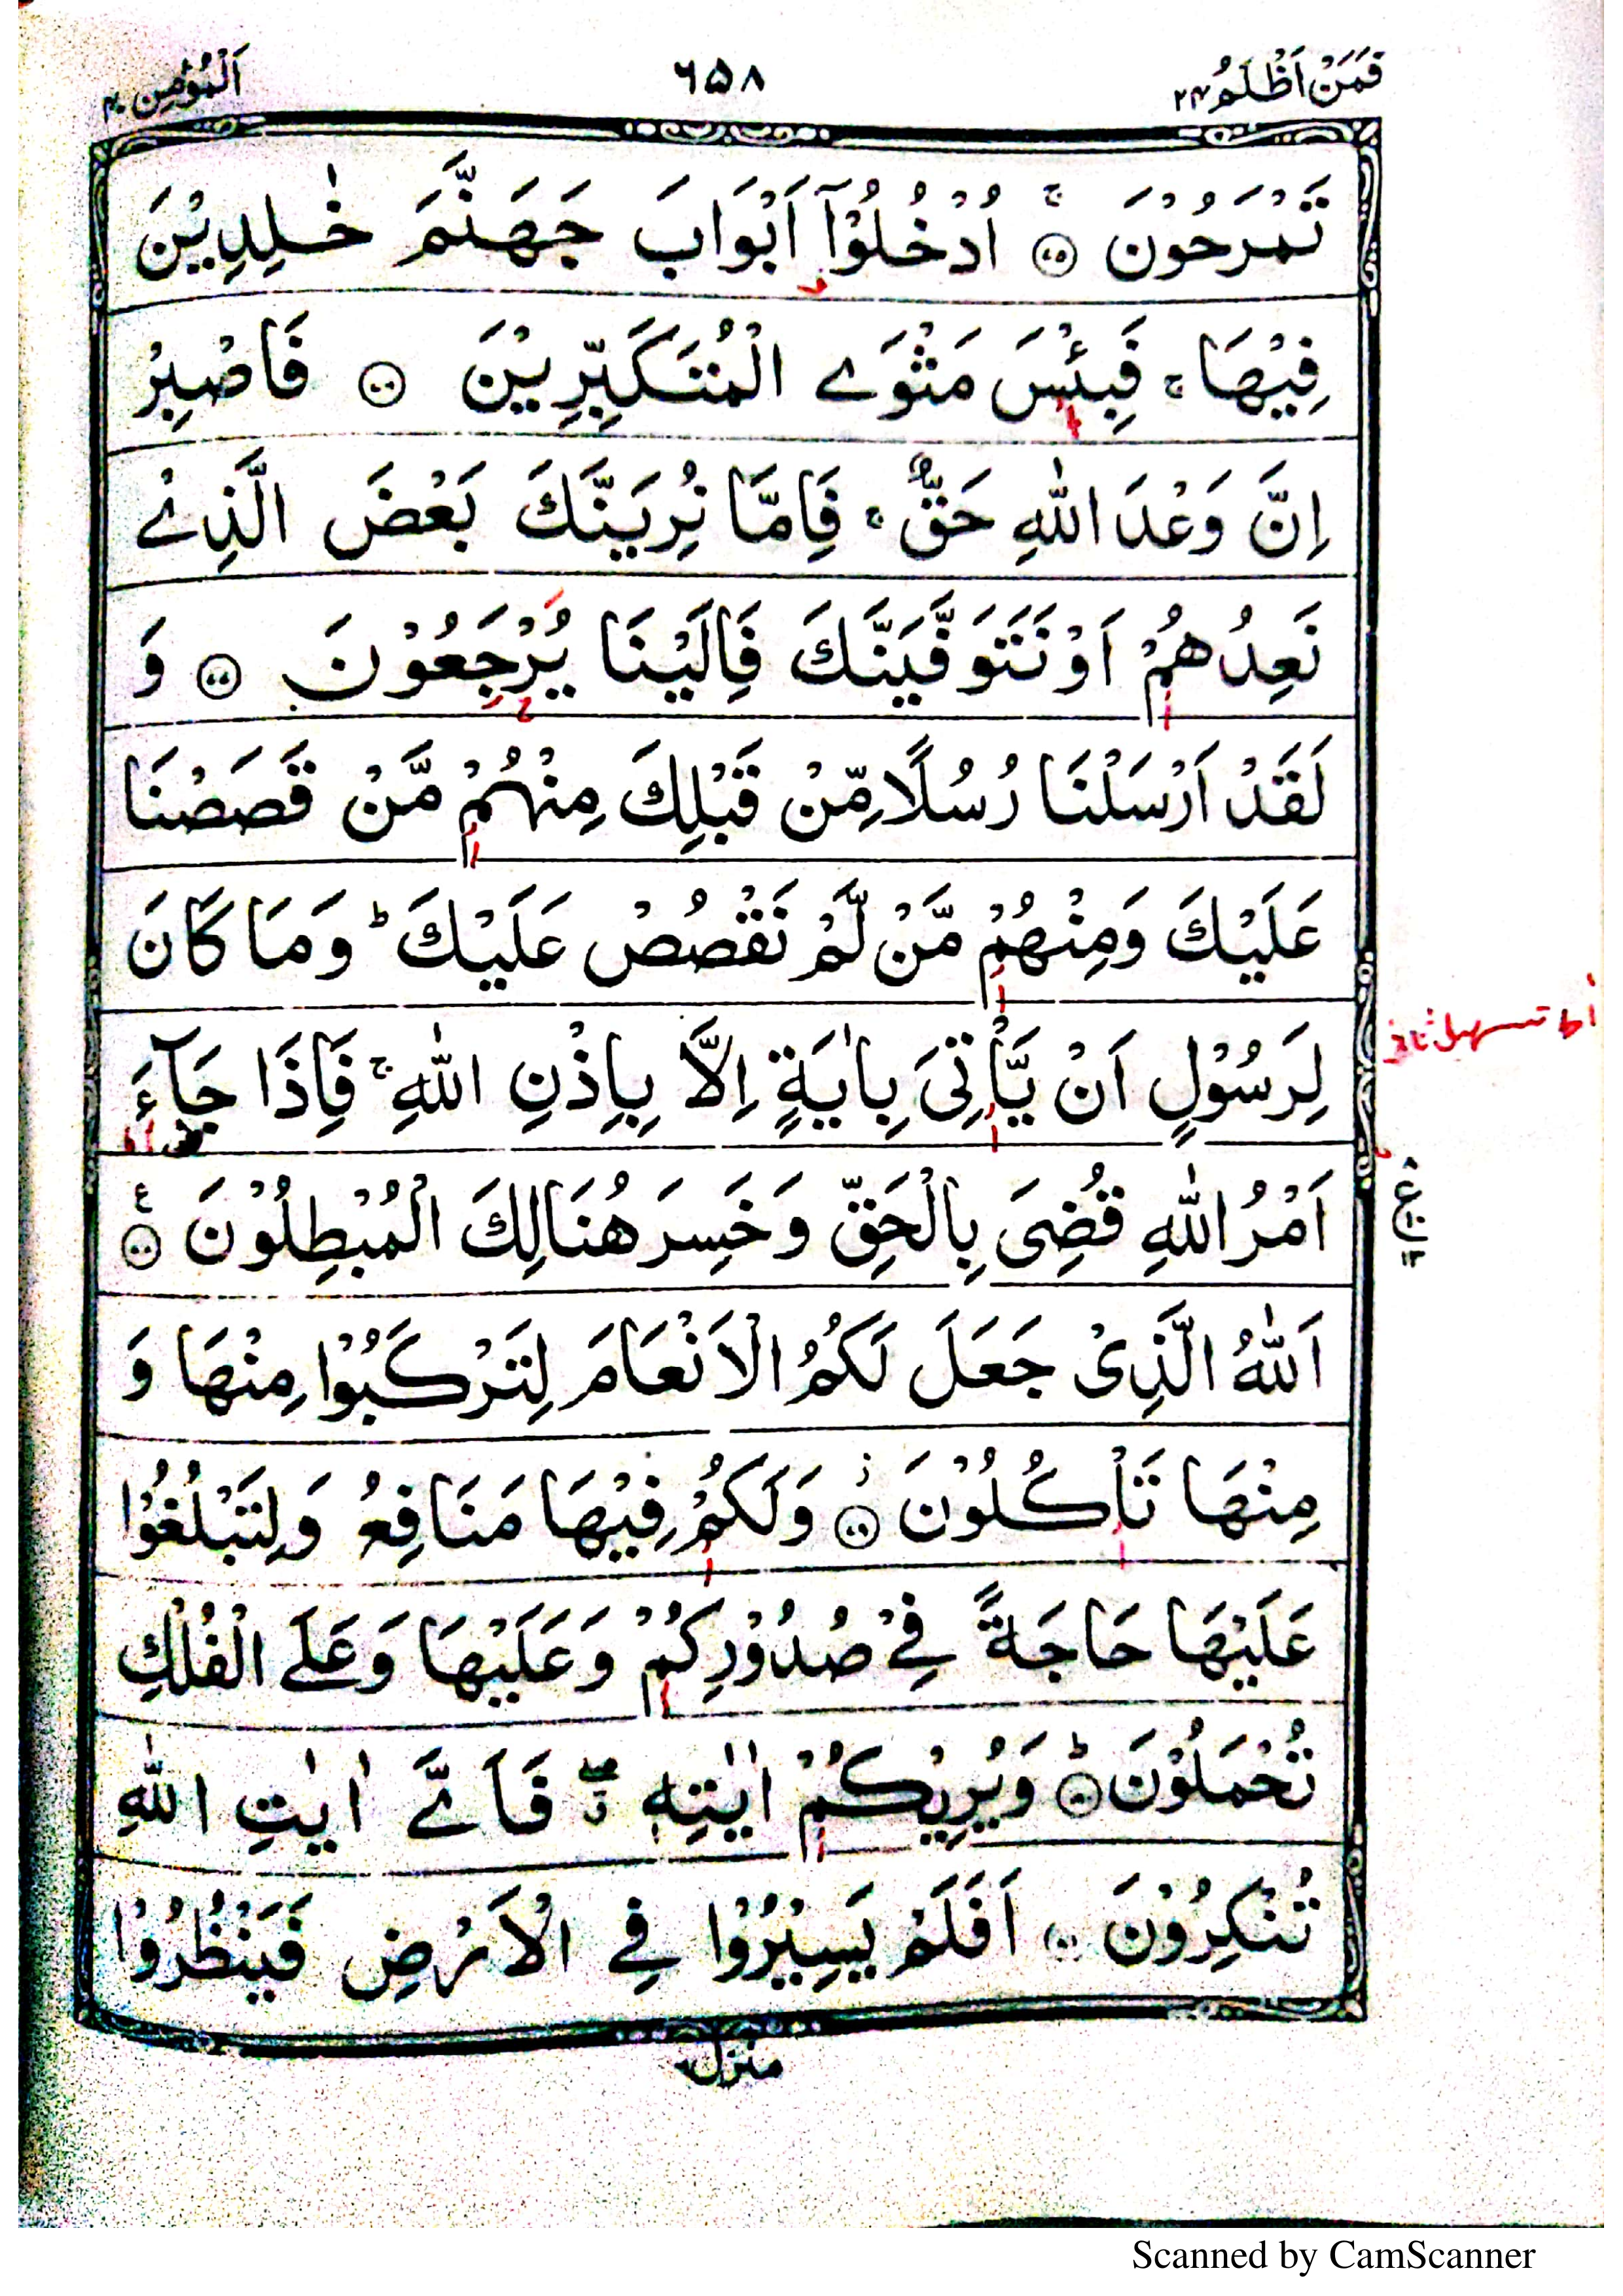 فَمَنْ اَظْلَمُ ٢٤
٦٥٨
اَلْمُؤْمِن ٤٠
تَمْرَحُوْنَ ۚ ۝٧٥ اُدْخُلُوْٓا اَبْوَابَ جَهَنَّمَ خٰلِدِيْنَ
فِيْهَا ۚ فَبِئْسَ مَثْوَى الْمُتَكَبِّرِيْنَ ۝٧٦ فَاصْبِرْ
اِنَّ وَعْدَ اللّٰهِ حَقٌّ ۚ فَاِمَّا نُرِيَنَّكَ بَعْضَ الَّذِيْ
نَعِدُهُمْ اَوْ نَتَوَفَّيَنَّكَ فَاِلَيْنَا يُرْجَعُوْنَ ۝٧٧ وَ
لَقَدْ اَرْسَلْنَا رُسُلًا مِّنْ قَبْلِكَ مِنْهُمْ مَّنْ قَصَصْنَا
عَلَيْكَ وَمِنْهُمْ مَّنْ لَّمْ نَقْصُصْ عَلَيْكَ ؕ وَمَا كَانَ
لِرَسُوْلٍ اَنْ يَّاْتِيَ بِاٰيَةٍ اِلَّا بِاِذْنِ اللّٰهِ ۚ فَاِذَا جَآءَ
اَمْرُ اللّٰهِ قُضِيَ بِالْحَقِّ وَخَسِرَ هُنَالِكَ الْمُبْطِلُوْنَ ۝٧٨ ع
اَللّٰهُ الَّذِيْ جَعَلَ لَكُمُ الْاَنْعَامَ لِتَرْكَبُوْا مِنْهَا وَ
مِنْهَا تَاْكُلُوْنَ ۝٧٩ وَلَكُمْ فِيْهَا مَنَافِعُ وَلِتَبْلُغُوْا
عَلَيْهَا حَاجَةً فِيْ صُدُوْرِكُمْ وَعَلَيْهَا وَعَلَى الْفُلْكِ
تُحْمَلُوْنَ ؕ ۝٨٠ وَيُرِيْكُمْ اٰيٰتِهٖ ۖ فَاَيَّ اٰيٰتِ اللّٰهِ
تُنْكِرُوْنَ ۝٨١ اَفَلَمْ يَسِيْرُوْا فِي الْاَرْضِ فَيَنْظُرُوْا
منزل
Scanned by CamScanner